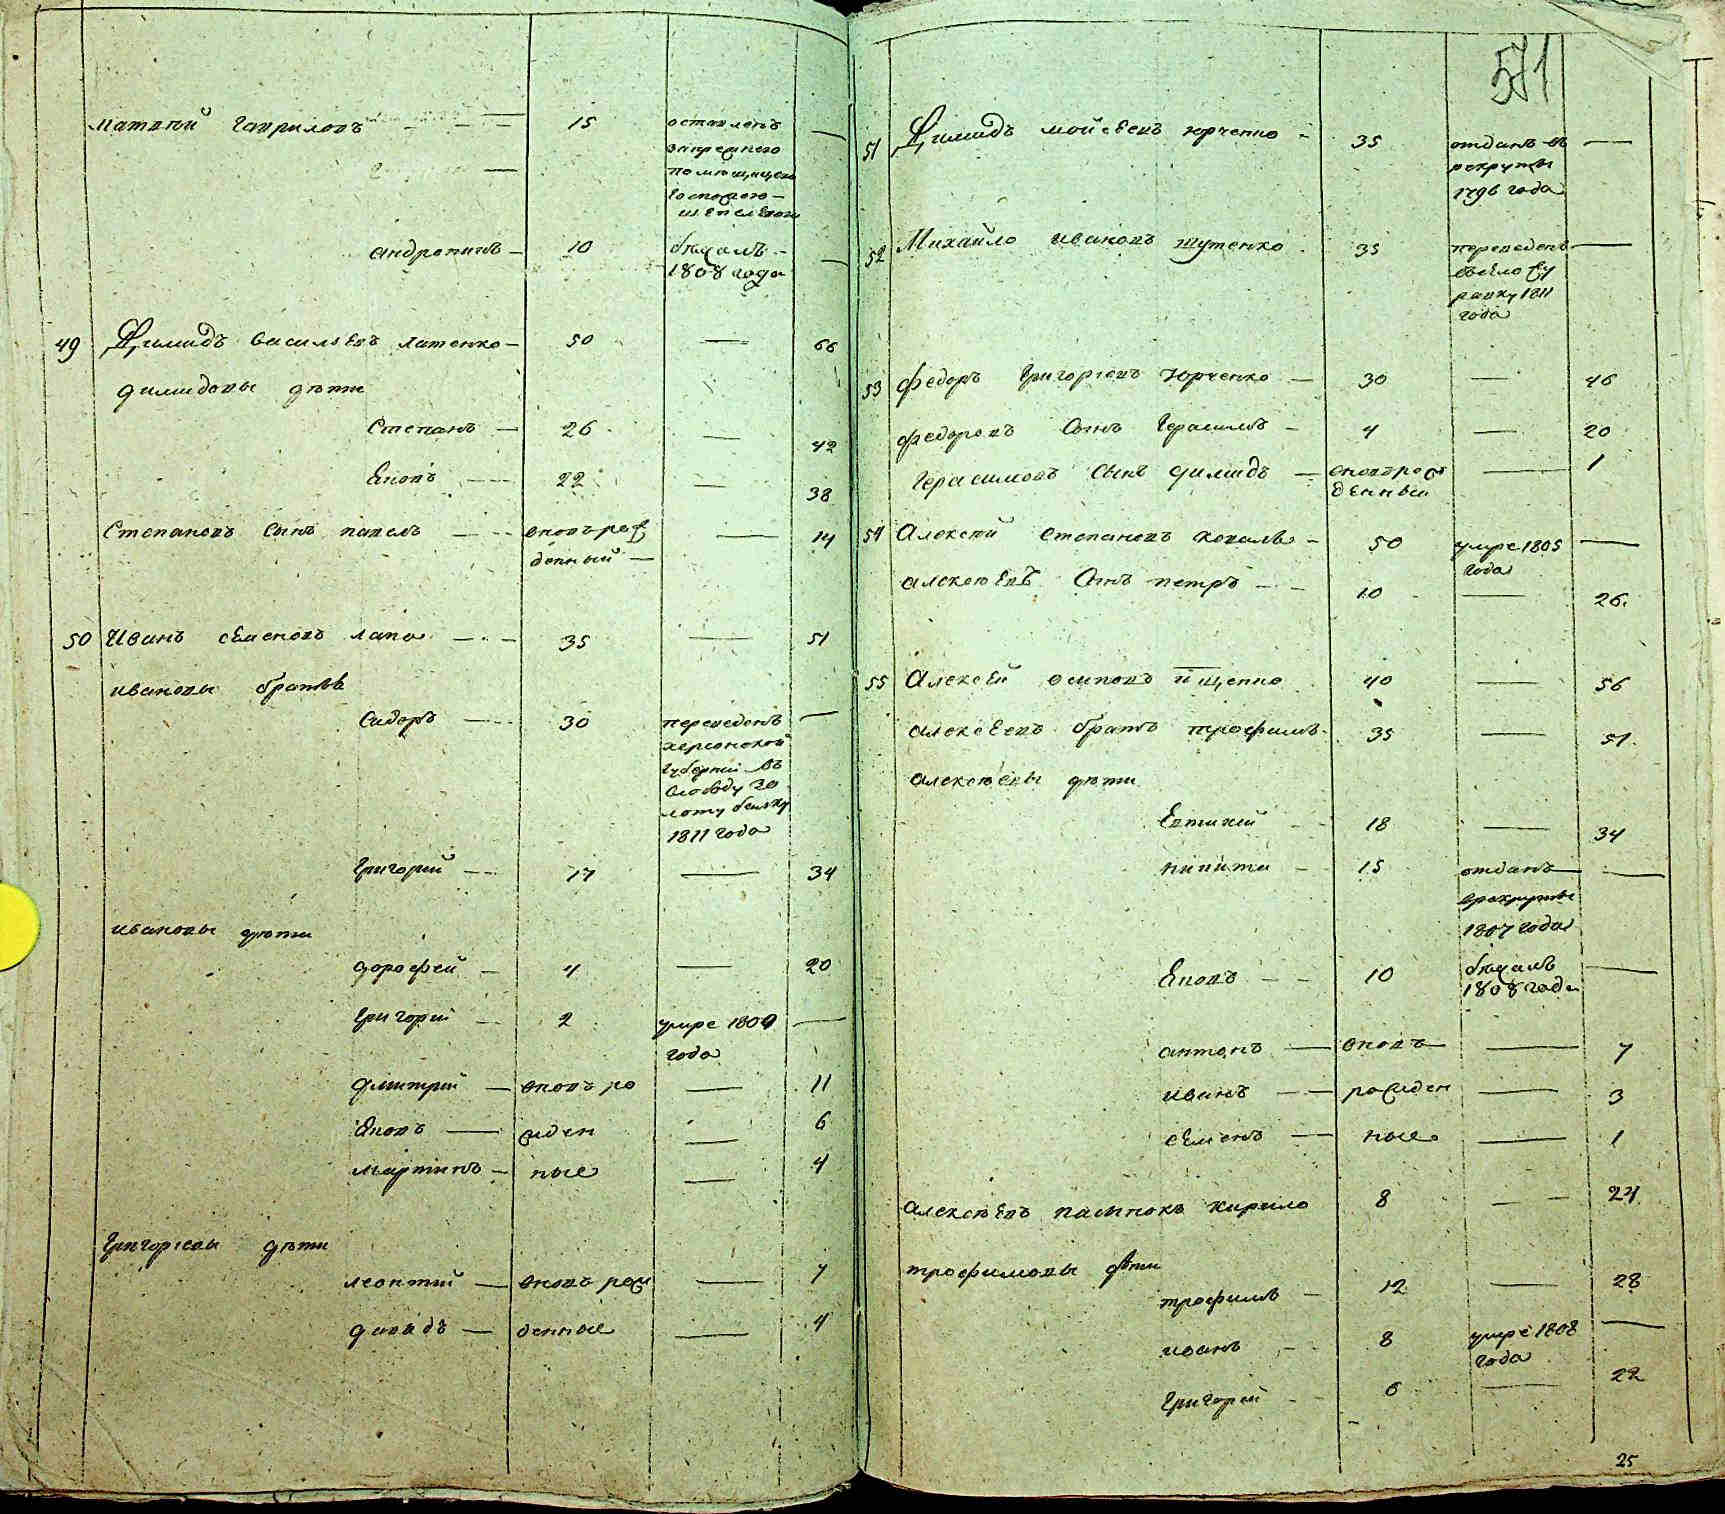 матвѣй гавриловъ — 15 оставленъ —
запрежнего
помещицею
госпожею
шепелевою
андроникъ — 10 бѣжалъ —
1808 года
49 Димидъ васильевъ латенко — 50 — 66
димидовы дѣти
Степанъ — 26 — 42
Яковъ — 22 — 38
Степановъ сынъ павелъ — вновьрож — 14
денный —
50 Иванъ семеновъ лапа — 35 — 51
ивановы братья
Сидоръ — 30 переведенъ —
херсонской
губернии въ
слободу зо
лоту балку
1811 года
Григорий — 17 — 34
ивановы дѣти
дорофей — 4 — 20
григорий — 2 умре 1809 —
года
дмитрий — вновь ро — 11
Яковъ — жден — 6
мартинъ — ные — 4
Григориевы дѣти
леонтий — вновь рож — 7
давидъ — денные — 4
571
51 Димидъ мойсеевъ юрченко — 35 отданъ въ —
рекруты
1796 года
52 Михайло ивановъ шутенко 35 переведенъ —
1811
года
53 федоръ григориевъ Юрченко — 30 — 46
федоровъ сынъ герасимъ — 4 — 20
герасимовъ сынъ димидъ — вновьрож — 1
денный
54 Алексей степановъ коваль — 50 умре 1805 —
года
алексѣевъ сынъ петръ — 10 — 26
55 Алексей осиповъ ищенко 40 — 56
алексеевъ братъ трофимъ 35 — 51
алексѣевы дѣти
Евтихий — 18 — 34
никита — 15 отданъ —
врекруты
1807 года
Яковъ — 10 бѣжалъ —
1808 года
антонъ — вновь — 7
иванъ — рожден — 3
семенъ — ные — 1
алексѣевъ пасынокъ кирило 8 — 24
трофимовы дѣти
трофимъ — 12 — 28
иванъ — 8 умре 1808 —
года
григорий — 6 — 22
25